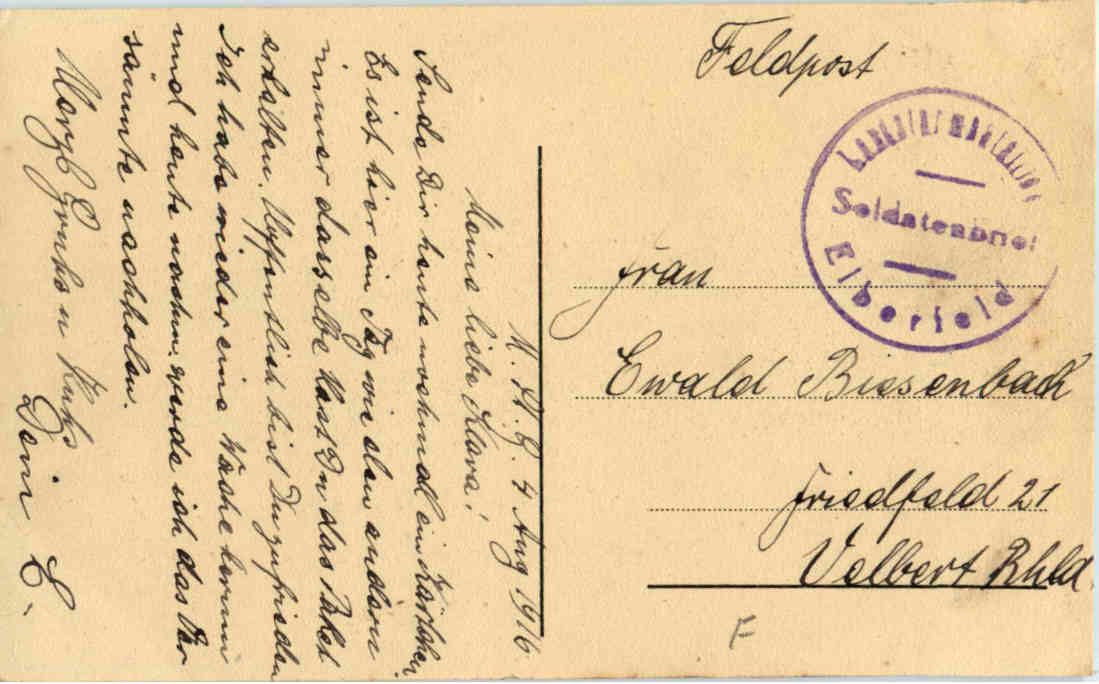 Feldpost
Soldatenbrief
Elberfeld
Frau
Ewald Biesenbach
Friedfeld 21
Velbert Rhld.
F
4 Aug 1916
Meine liebe Klara!
Sende Dir heute nochmal ein Kärtchen
Es ist hier ein Tag wie den andern
immer dasselbe Hast Du das Paket
erhalten. Hoffentlich bist Du zufrieden
Ich habe wieder eine Woche herum
und heute nachm. werde ich das Ver
säumte nachholen.
Herzl. Gruß u Kuß
Dein E.